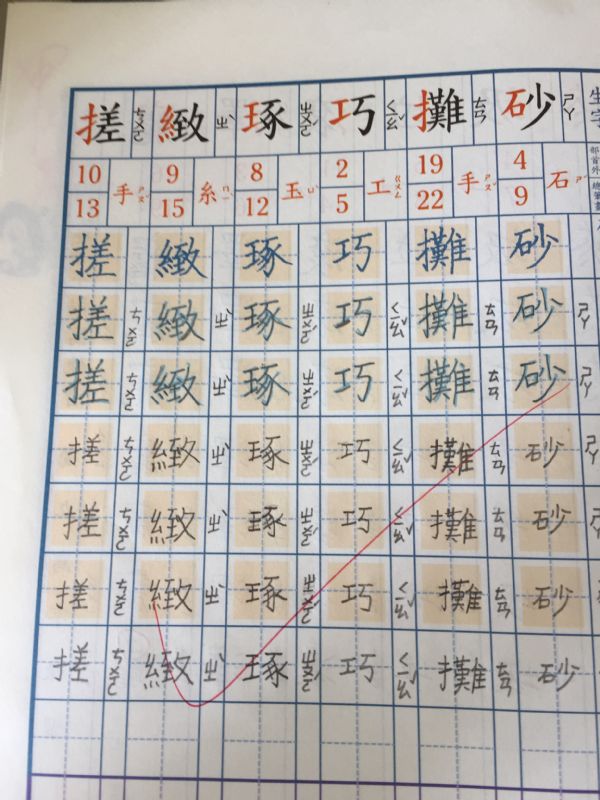 生字 部首外 總筆畫
砂 ㄕㄚ
4 9 石 ㄕˊ
砂
砂 ㄕㄚ
砂 ㄕㄚ
砂
砂
砂
砂
攤 ㄊㄢ
19 22 手 ㄕㄡˇ
攤
攤 ㄊㄢ
攤 ㄊㄢ
攤 ㄊㄢ
攤 ㄊㄢ
攤 ㄊㄢ
攤 ㄊㄢ
巧 ㄑㄧㄠˇ
2 5 工 ㄍㄨㄥ
巧
巧 ㄑㄧㄠˇ
巧 ㄑㄧㄠˇ
巧 ㄑㄧㄠˇ
巧 ㄑㄧㄠˇ
巧 ㄑㄧㄠˇ
巧 ㄑㄧㄠˇ
琢 ㄓㄨㄛˊ
8 12 玉 ㄩˋ
琢
琢 ㄓㄨㄛˊ
琢 ㄓㄨㄛˊ
琢 ㄓㄨㄛˊ
琢 ㄓㄨㄛˊ
琢 ㄓㄨㄛˊ
琢 ㄓㄨㄛˊ
緻 ㄓˋ
9 15 糸 ㄇㄧˋ
緻
緻 ㄓˋ
緻 ㄓˋ
緻 ㄓˋ
緻 ㄓˋ
緻 ㄓˋ
緻 ㄓˋ
搓 ㄘㄨㄛ
10 13 手 ㄕㄡˇ
搓
搓 ㄘㄨㄛ
搓 ㄘㄨㄛ
搓 ㄘㄨㄛ
搓 ㄘㄨㄛ
搓 ㄘㄨㄛ
搓 ㄘㄨㄛ